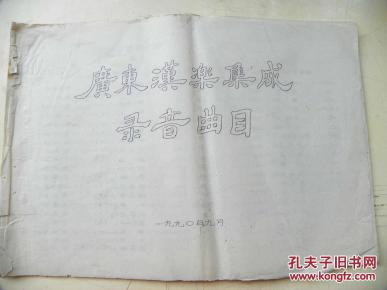 廣東漢楽集成
录音曲目
一九九〇年九月
孔夫子旧书网